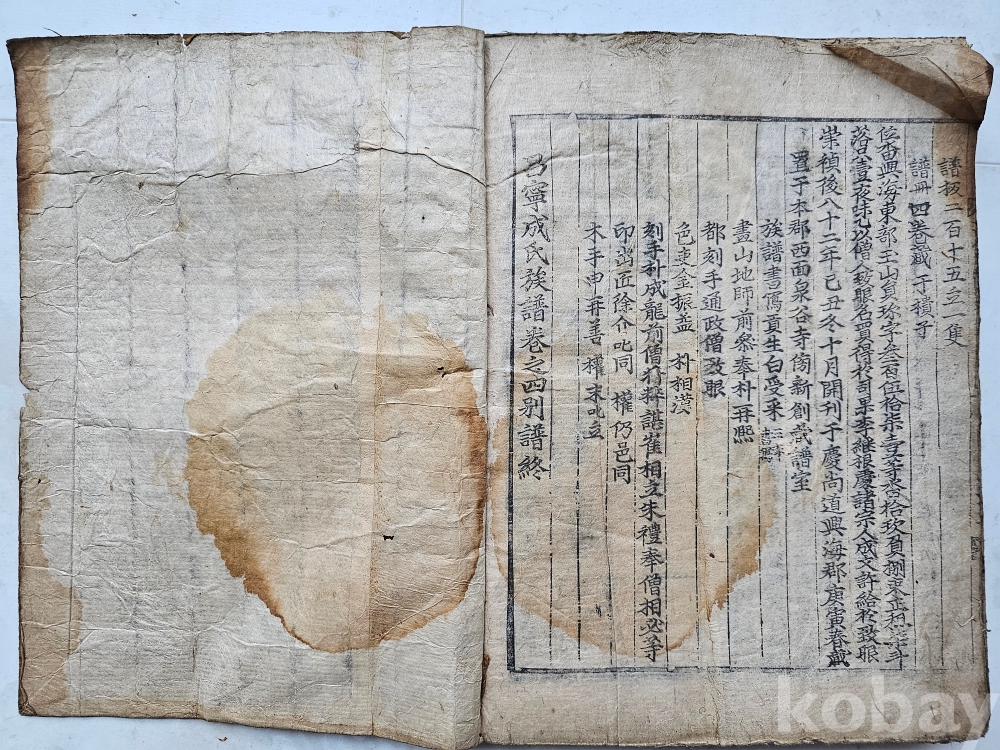 譜板二百十五立一隻
譜冊四卷藏于積子
位畓興海東部玉山員珎字叁百伍拾柒壹等畓拾玖負捌束正租斗
落只壹夜味乙僧人致眼名買得於司果李維根慶諸宗人成文許給於致眼
崇禎後八十二年己丑冬十月開刊于慶尚道興海郡庚寅春藏
置于本郡西面泉谷寺傍新創藏譜室
族譜書寫貢生白受采
畫山地師前叅奉朴再熙
都刻手通政僧致眼
色吏金振益 朴相漢
刻手朴成龍前僧行粹諶崔相立朱禮奉僧相必等
印出匠徐介叱同 權仍邑同
木手申再善 權末叱立
昌寧成氏族譜卷之四別譜終
kobay